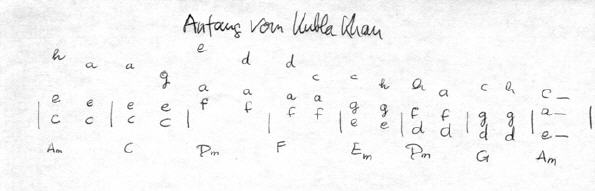 Anfang vom Kubla Khan
h a a g e d d c c h a a c h c—
| e e | e e | a a | a a | g g | f f | g g | a— |
c c c c f f f f e e d d d d e—
Am C Dm F Em Dm G Am